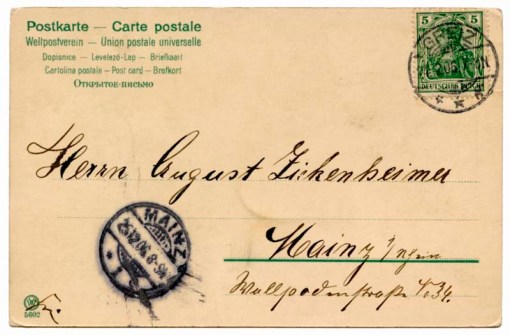 Postkarte — Carte postale
Weltpostverein — Union postale universelle
Dopisnice — Levelező-Lap — Briefkaart
Cartolina postale — Post card — Brefkort
Открытое письмо
5 5
DEUTSCHES REICH
Herrn August Zichenheimer
MAINZ
25.12.06. 8-9
* 1
Mainz
Wallpodenstraße
5602